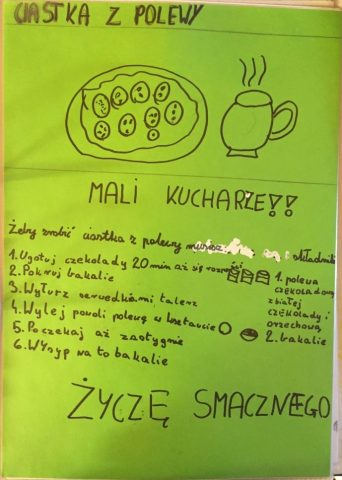 CIASTKA Z POLEWY
MALI KUCHARZE!!
Żeby zrobić ciastka z polewy musisz składniki
1. Ugotuj czekolady 20 min aż się
2. Pokruj bakalie
3. Wyłurz serwedkami talerz
4. Wylej powoli polewę w kształcie
5. Poczekaj aż zastygnie
6. Wysyp na to bakalie
1. polewa
czekoladowa
z białej
czekolady i
orzechowa
2. bakalie
ŻYCZĘ SMACZNEGO